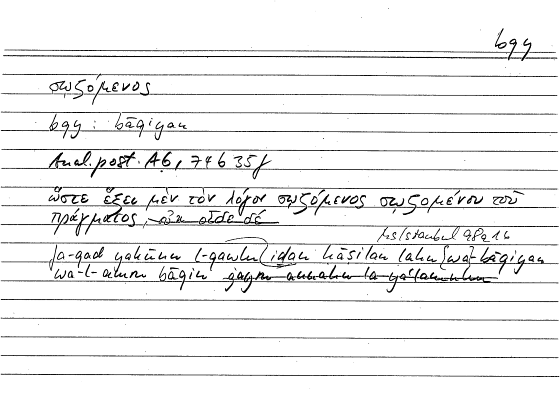 bqy
σῳζόμενος
bqy : bāqiyan
Anal. post. A6, 74b35f
ὥστε ἕξει μὲν τὸν λόγον σῳζόμενος σῳζομένου τοῦ
πράγματος, οὐκ οἶδε δέ
Ms Istanbul 98a 16
fa-qad yakūnu l-qawlu iḏan ḥāṣilan lahu {wa} bāqiyan
wa-l-amru bāqin ġayra annahu lā yaʿlamuhu